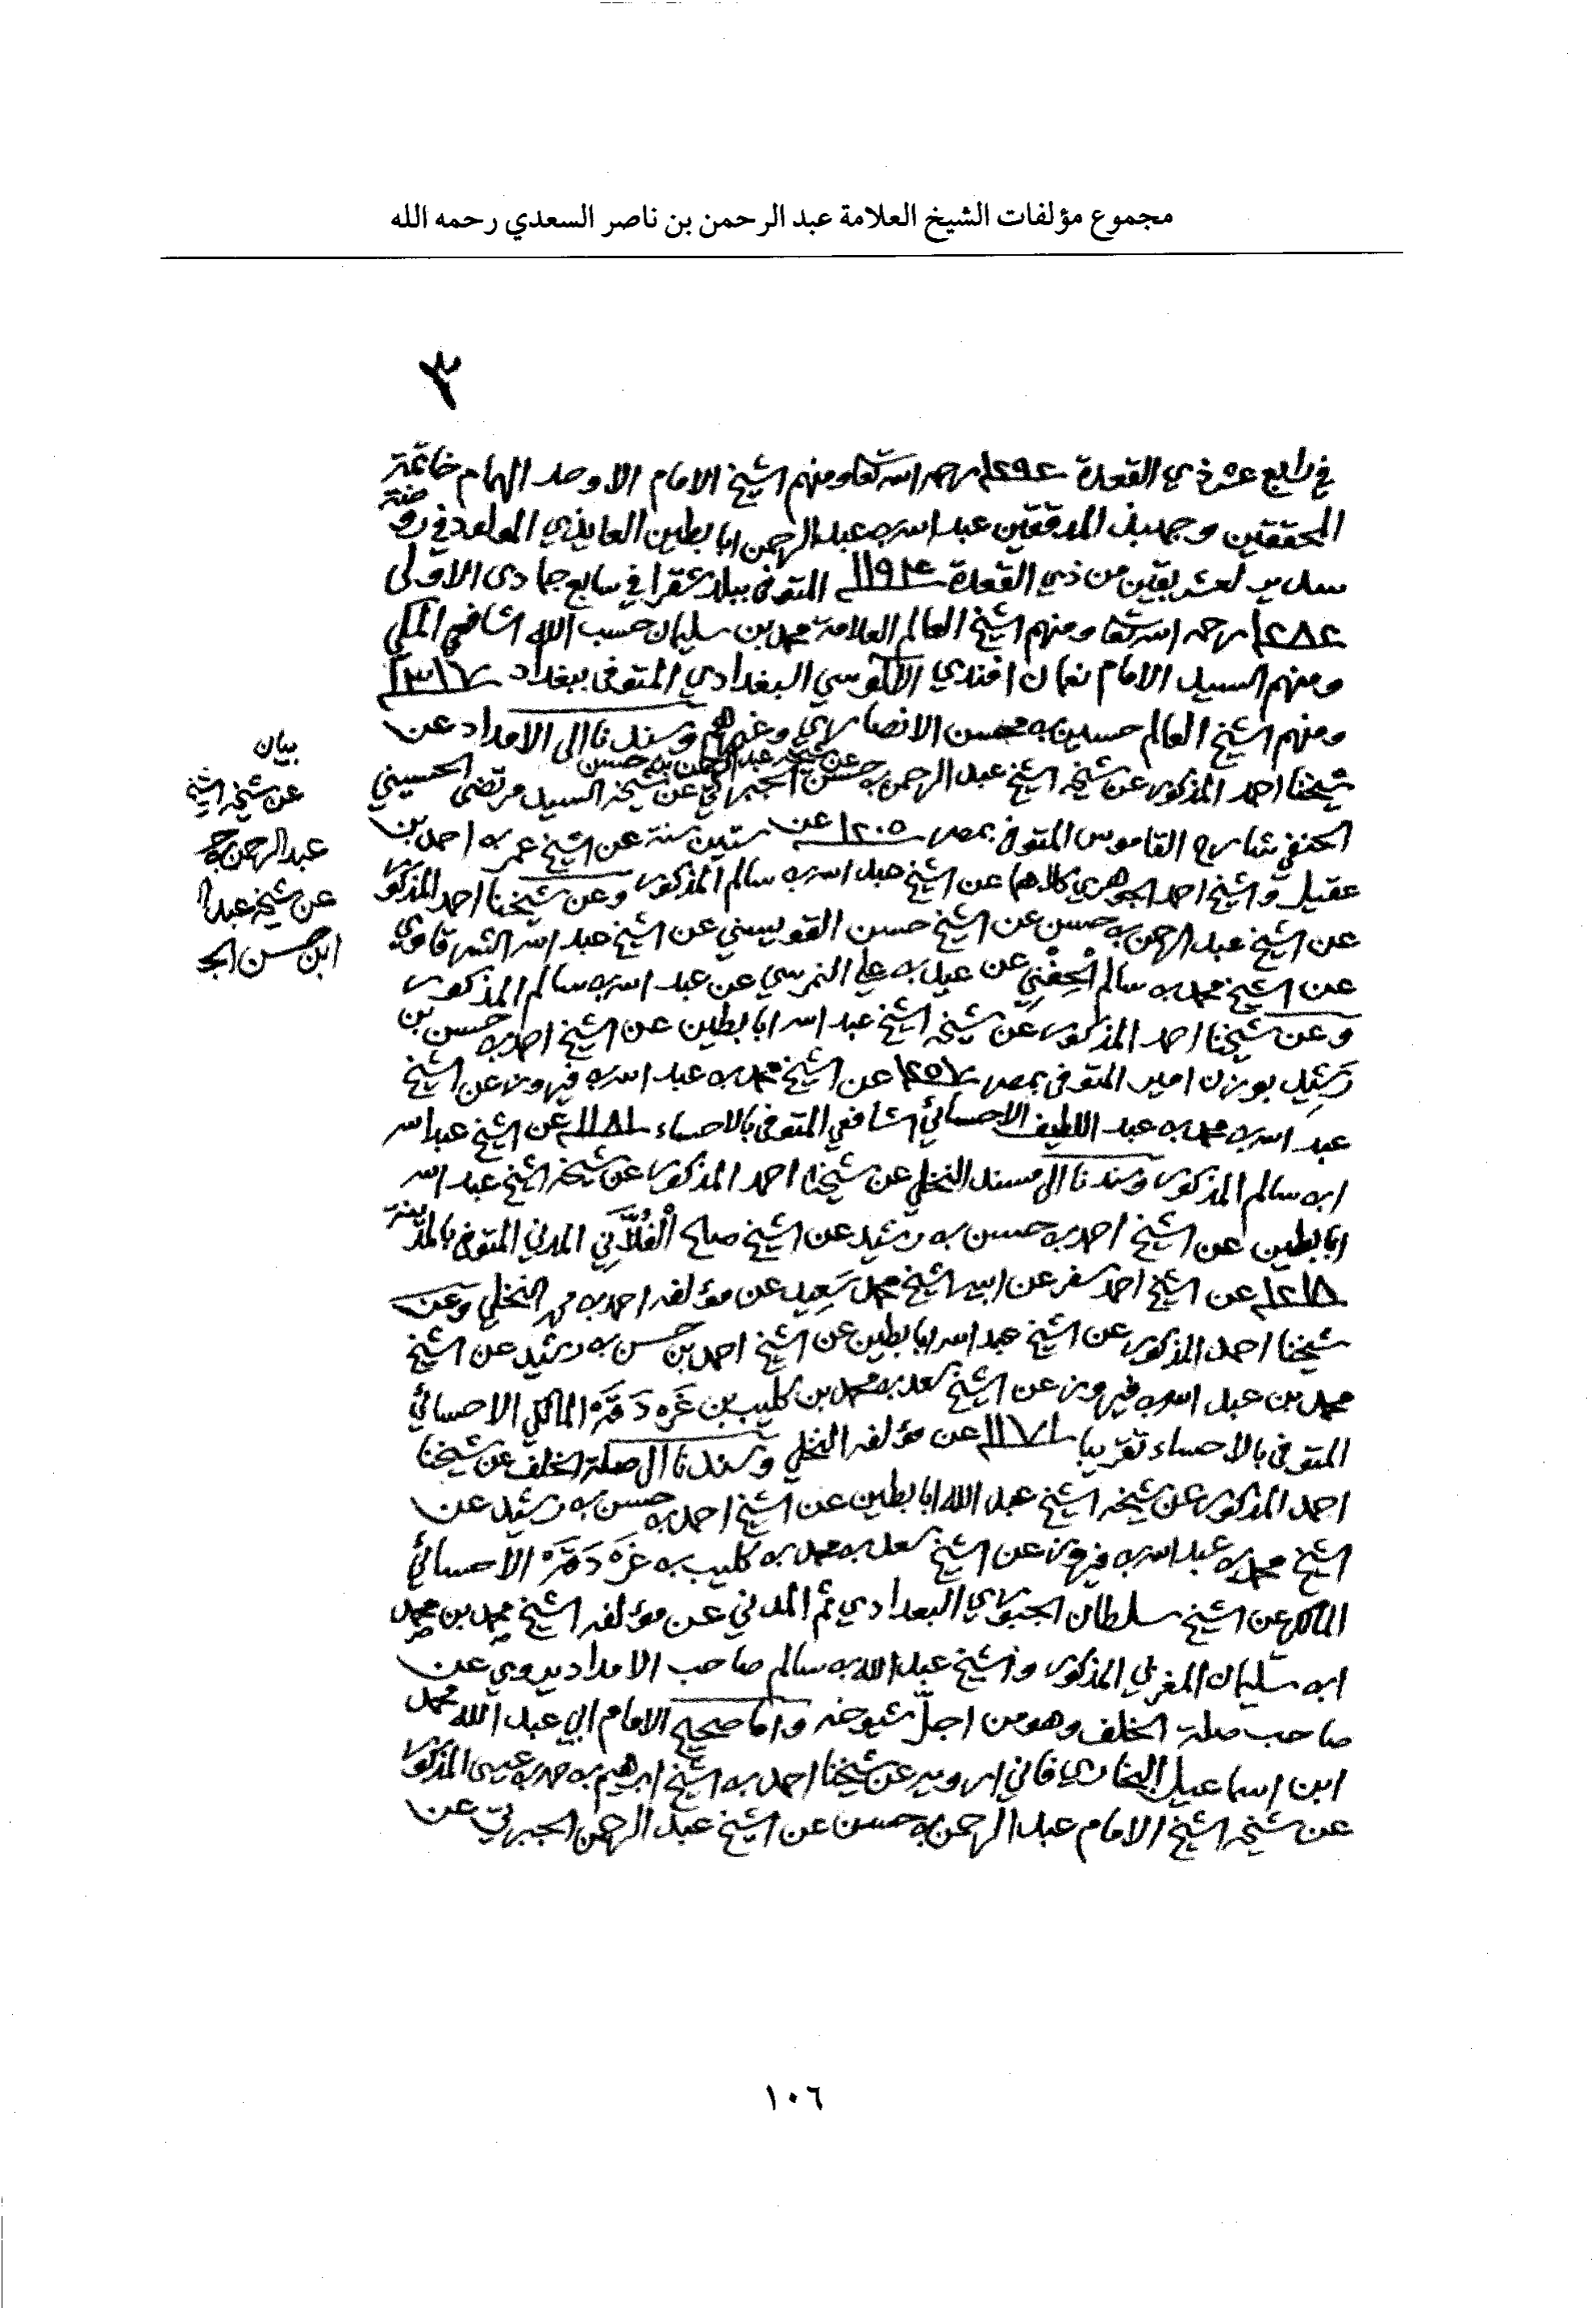 مجموع مؤلفات الشيخ العلامة عبد الرحمن بن ناصر السعدي رحمه الله
٣
في رابع عشر ذي القعدة ١٢٩٢ رحمه الله تعالى ومنهم الشيخ الامام الاوحد الهمام خاتمة
المحققين وجهبذ المدققين عبد الله بن عبد الرحمن ابا بطين العايذي المولود في روضة
سدير لعشر بقين من ذي القعدة ١١٩٤ المتوفى ببلد شقرا في سابع جمادى الاولى
١٢٨٢ رحمه الله تعالى ومنهم الشيخ العالم العلامة محمد بن سليمان حسب الله الشافعي المكي
ومنهم السيد الامام نعمان افندي الآلوسي البغدادي المتوفى ببغداد ١٣١٧
ومنهم الشيخ العالم حسين بن محسن الانصاري وغيرهم وسندنا الى الامداد عن
شيخنا احمد المذكور عن شيخه الشيخ عبد الرحمن بن حسن عن شيخه عبد الرحمن بن حسن الجبرتي عن شيخه السيد مرتضى الحسيني
الحنفي شارح القاموس المتوفى بمصر ١٢٠٥ عن ستين سنة عن الشيخ عمر بن احمد بن
عقيل والشيخ احمد الجوهري كلاهما عن الشيخ عبد الله بن سالم المذكور وعن شيخنا احمد المذكور
عن الشيخ عبد الرحمن بن حسن عن الشيخ حسن القويسني عن الشيخ عبد الله الشرقاوي
عن الشيخ محمد بن سالم الحفني عن عيد بن علي النمرسي عن عبد الله بن سالم المذكور
وعن شيخنا احمد المذكور عن شيخه الشيخ عبد الله ابا بطين عن الشيخ احمد بن حسن بن
رشيد بوزن امير المتوفى بمصر ١٢٥٧ عن الشيخ محمد بن عبد الله بن فيروز عن الشيخ
عبد الله بن محمد بن عبد اللطيف الاحسائي الشافعي المتوفى بالاحساء ١١٨١ عن الشيخ عبد الله
ابن سالم المذكور وسندنا الى مسند النخلي عن شيخنا احمد المذكور عن شيخه الشيخ عبد الله
ابا بطين عن الشيخ احمد بن حسن بن رشيد عن الشيخ صالح الفُلَّاني المدني المتوفى بالمدينة
١٢١٨ عن الشيخ احمد سفر عن ابيه الشيخ محمد سَعِيد عن مؤلفه احمد بن محمد النخلي وعن
شيخنا احمد المذكور عن الشيخ عبد الله ابا بطين عن الشيخ احمد بن حسن بن رشيد عن الشيخ
محمد بن عبد الله بن فيروز عن الشيخ سعد بن محمد بن كليب بن غَرْدَقَه المالكي الاحسائي
المتوفى بالاحساء تقريبا ١١٧١ عن مؤلفه النخلي وسندنا الى صلة الخلف عن شيخنا
احمد المذكور عن شيخه الشيخ عبد الله ابا بطين عن الشيخ احمد بن حسن بن رشيد عن
الشيخ محمد بن عبد الله بن فيروز عن الشيخ سعد بن محمد بن كليب بن غَرْدَقَه الاحسائي
المالكي عن الشيخ سلطان الجبوري البغدادي ثم المدني عن مؤلفه الشيخ محمد بن محمد
ابن سليمان المغربي المذكور والشيخ عبد الله بن سالم صاحب الامداد يروي عن
صاحب صلة الخلف وهو من اجلّ شيوخه واما صحيح الامام ابي عبد الله محمد
ابن اسماعيل البخاري فاني ارويه عن شيخنا احمد بن الشيخ ابرهيم بن حمد بن عيسى المذكور
عن شيخه الشيخ الامام عبد الرحمن بن حسن عن الشيخ عبد الرحمن الجبرتي عن
بيان
عن شيخه الشيخ
عبد الرحمن بن ح
عن شيخه عبد ا
ابن حسن الجـ
١٠٦